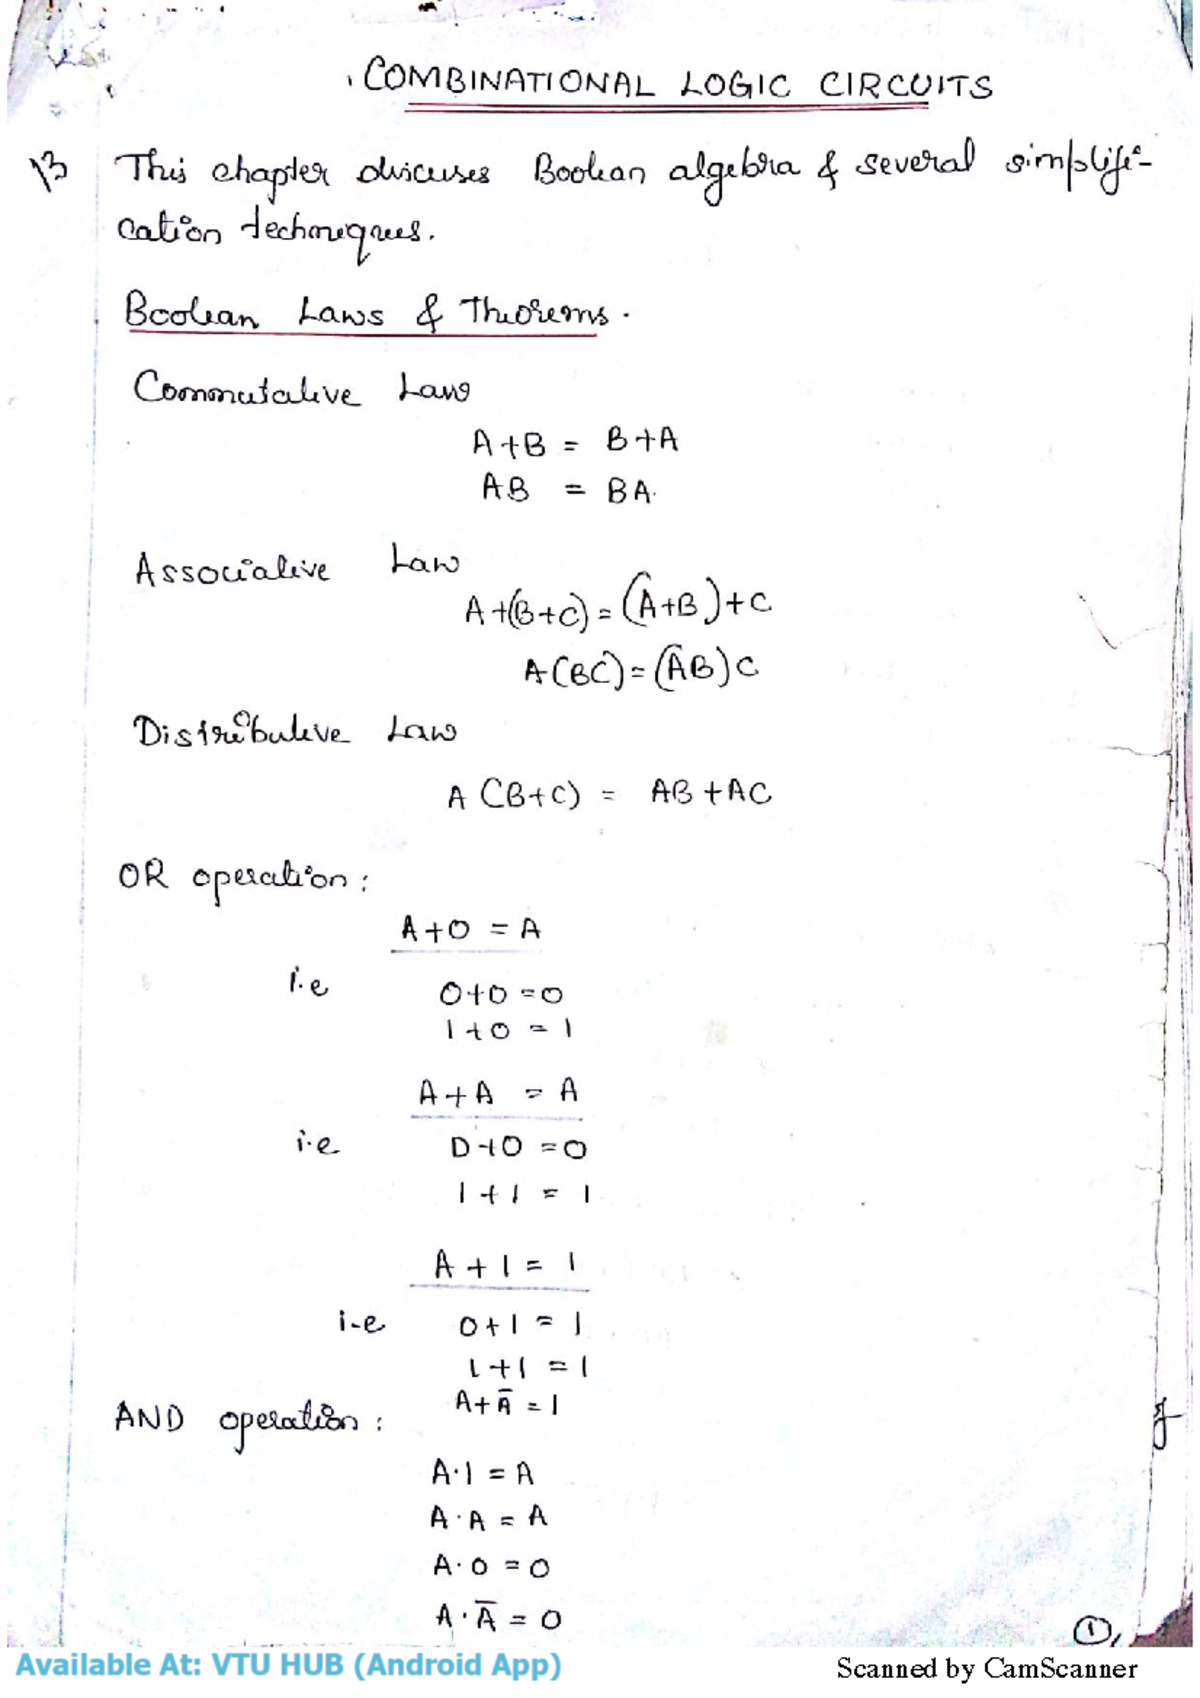 COMBINATIONAL LOGIC CIRCUITS
13 This chapter discuses Boolean algebra & several simplifi-
cation techniques.
Boolean Laws & Theorems.
Commutative Law
A+B = B+A
AB = BA.
Associative Law
A+(B+C) = (A+B)+C
A(BC) = (AB)C
Distributive Law
A (B+C) = AB+AC
OR operation:
A+0 = A
i.e 0+0 =0
1+0 = 1
A+A = A
i.e 0+0 =0
1+1 = 1
A+1 = 1
i-e 0+1 = 1
1+1 = 1
A+Ā = 1
AND operation:
A·1 = A
A·A = A
A·0 = 0
A·Ā = 0
1
Available At: VTU HUB (Android App)
Scanned by CamScanner